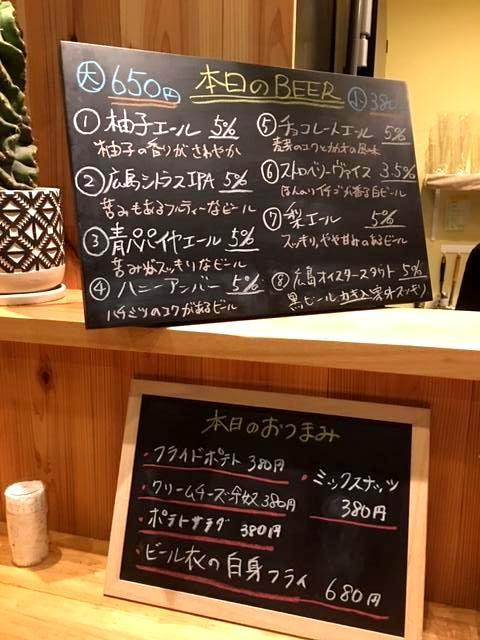 大 650円
本日のBEER
小 380
① 柚子エール 5%
柚子の香りがさわやか
② 広島シトラスIPA 5%
苦みもあるフルティーなビール
③ 青パパイヤエール 5%
苦みがスッキリなビール
④ ハニーアンバー 5%
ハチミツのコクがあるビール
⑤ チョコレートエール 5%
のコクとカカオの風味
⑥ ストロベリーヴァイス 3.5%
ほんのりイチゴが香る白ビール
⑦ 梨エール 5%
スッキリ、やや甘みのあるビール
⑧ 広島オイスタースタウト 5%
黒ビール カキ入 意外スッキリ
本日のおつまみ
・フライドポテト 380円
・クリームチーズ冷奴 380円
・ポテトサラダ 380円
・ビール衣の白身フライ 680円
・ミックスナッツ
380円